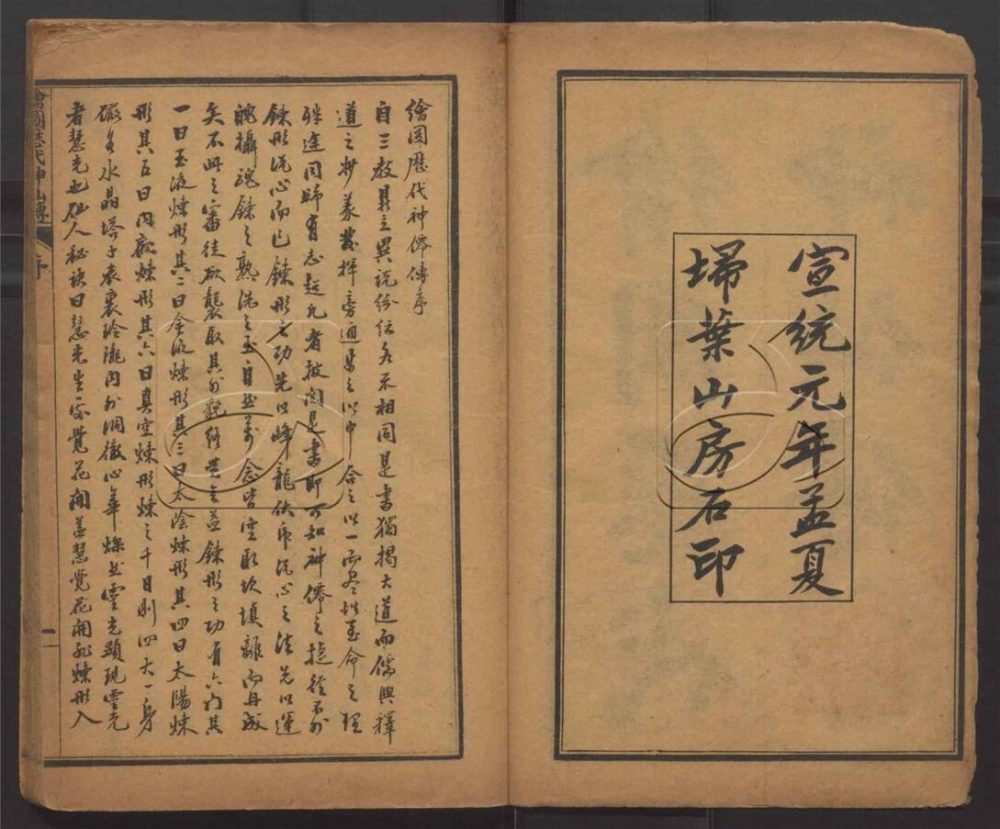 宣統元年孟夏
埽葉山房石印
繪圖歷代神僊傳序
自三教鼎立異說紛紜各不相同是書獨揭大道而儒與釋
道之抄義發揮旁通焉之以中合之以一而盡性至命之理
殊途同歸有志超凡者披閱是書即可知神僊之捷徑不外
鍊形洗心而已鍊形之功先以降龍伏虎洗心之法先以運
魄攝魂鍊之熟洗之至自然萬念皆空取坎填離而丹成
矣不此之審徒欲襲取其外貌終無益鍊形之功有六門其
一曰玉液煉形其二曰金液煉形其三曰太陰煉形其四曰太陽煉
形其五曰內觀煉形其六曰真空煉形煉之千日則四大一身
儼若水晶塔子表裏玲瓏內外洞徹心華燦然靈光顯現靈光
者慧光也仙人秘訣曰慧光生處覺花開蓋慧覺花開非煉形入
繪圖歷代神仙傳 序
一